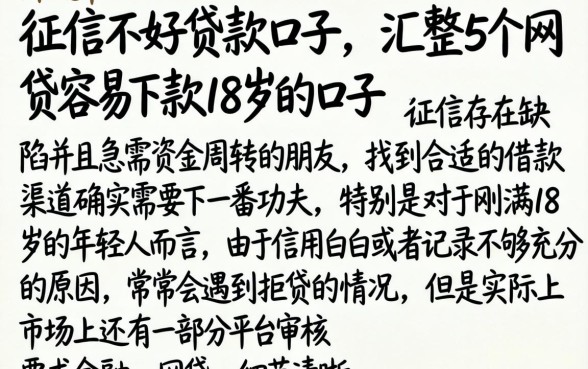 征信不好贷款口子，汇整5个网
贷容易下款18岁的口子
征信存在缺
陷并且急需资金周转的朋友，找到合适的借款
渠道确实需要下一番功夫，特别是对于刚满18
岁的年轻人而言，由于信用白白或者记录不够充分
的原因，常常会遇到拒贷的情况，但是实际上
市场上还有一部分平台审核